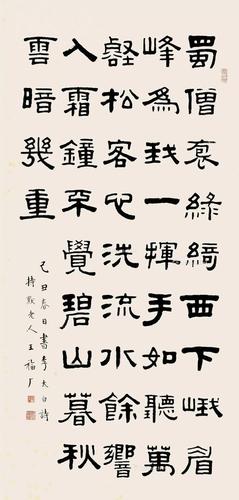 蜀僧袌綠綺西下峨眉
峰為我一揮手如聽萬
壑松客心洗流水餘響
入霜鐘不覺碧山暮秋
雲暗幾重
己丑春日書李太白詩
持默老人王福厂